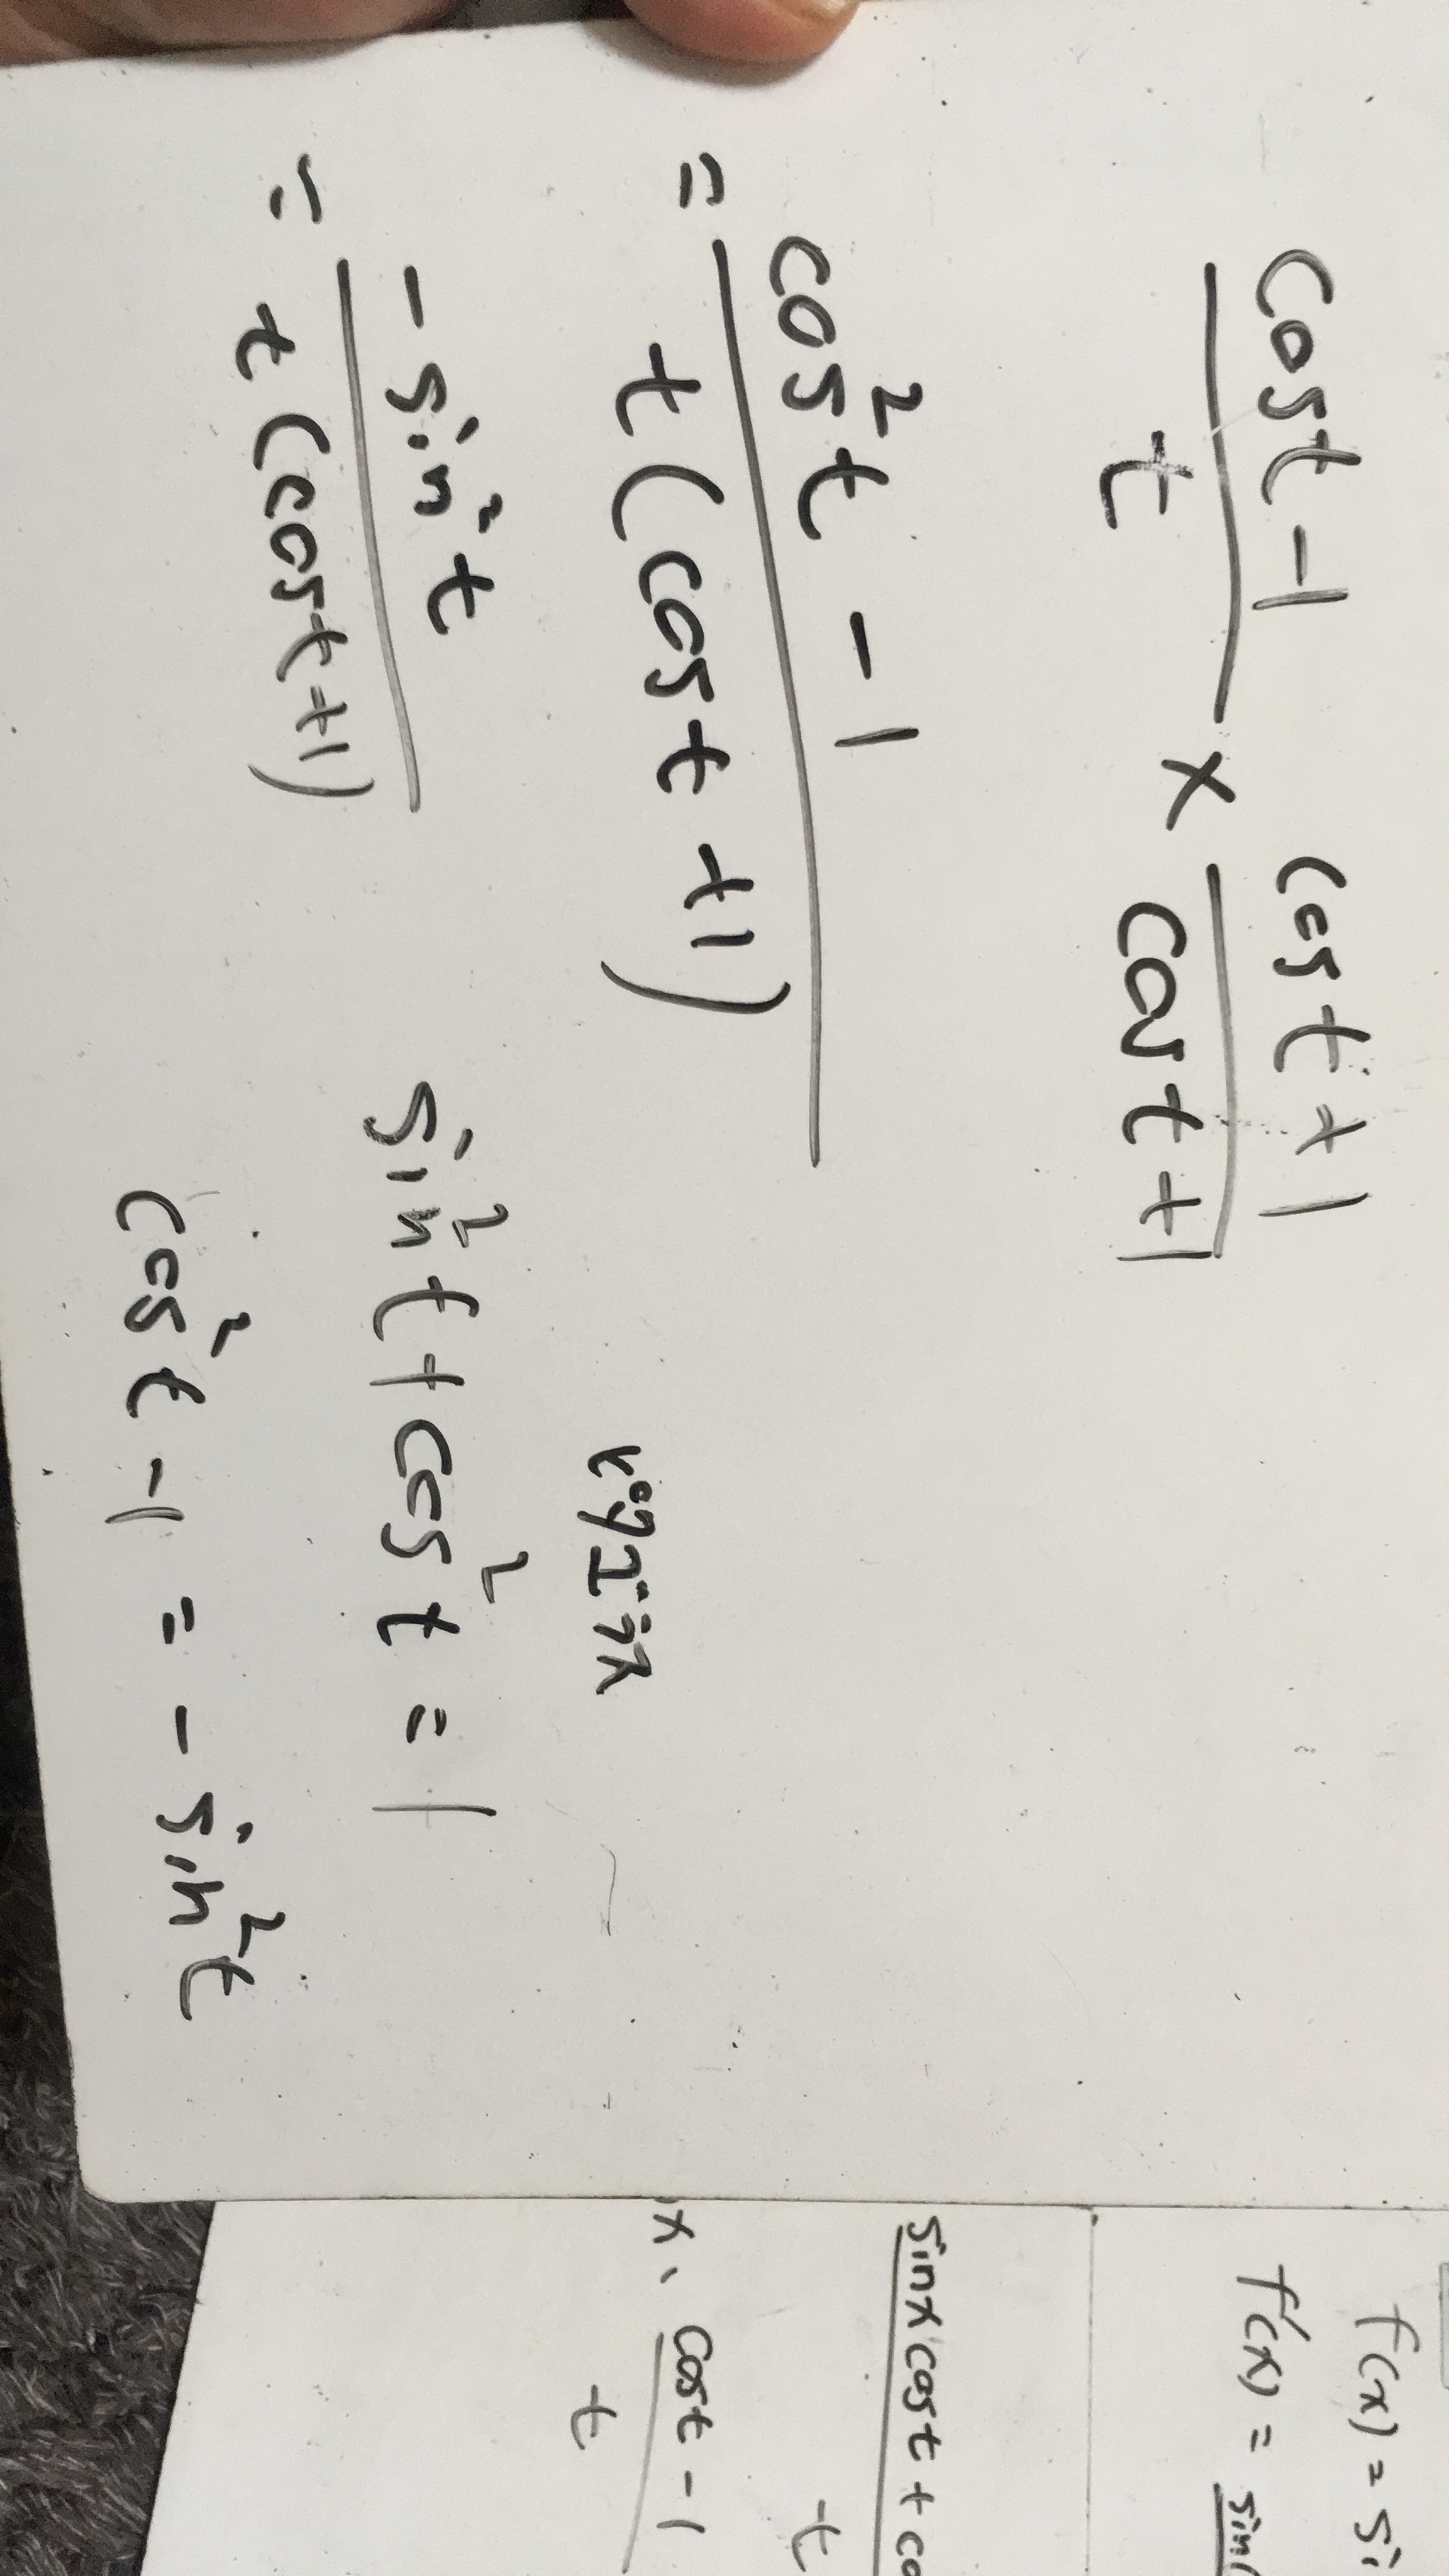 cost - 1 / t × cost + 1 / cost + 1
= cos²t - 1 / t(cost + 1)
= -sin²t / t(cost+1)
sin²t + cos²t = 1
cos²t - 1 = - sin²t
f(x) = si
f'(x) = sin(
sinx cost + co
t
x. cost - 1
t